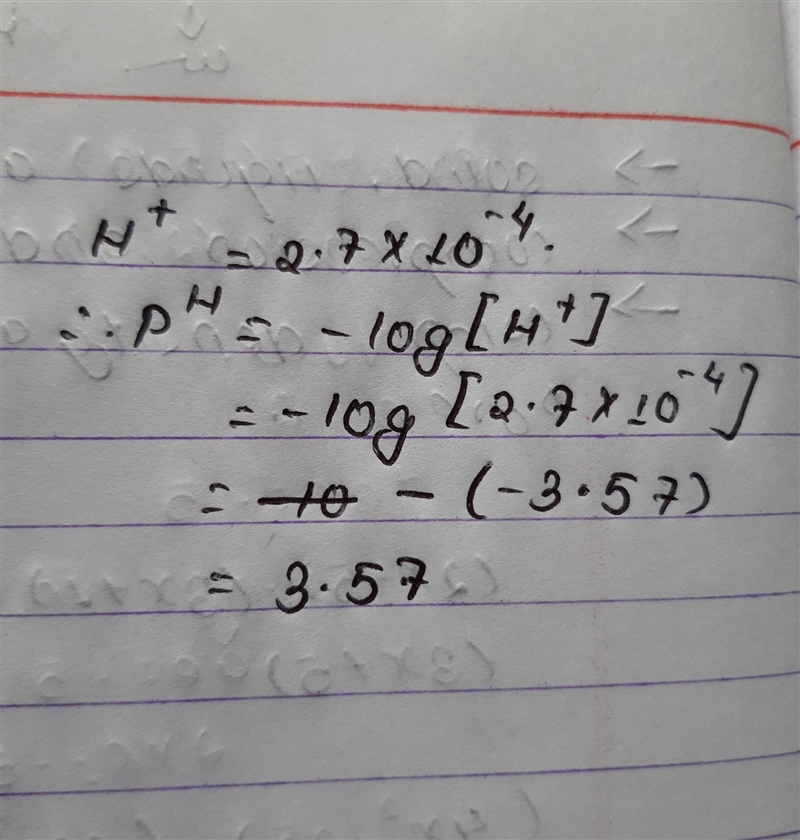 H⁺ = 2.7 × 10⁻⁴.
∴ pᴴ = - log [H⁺]
= - log [2.7 × 10⁻⁴]
= - (-3.57)
= 3.57